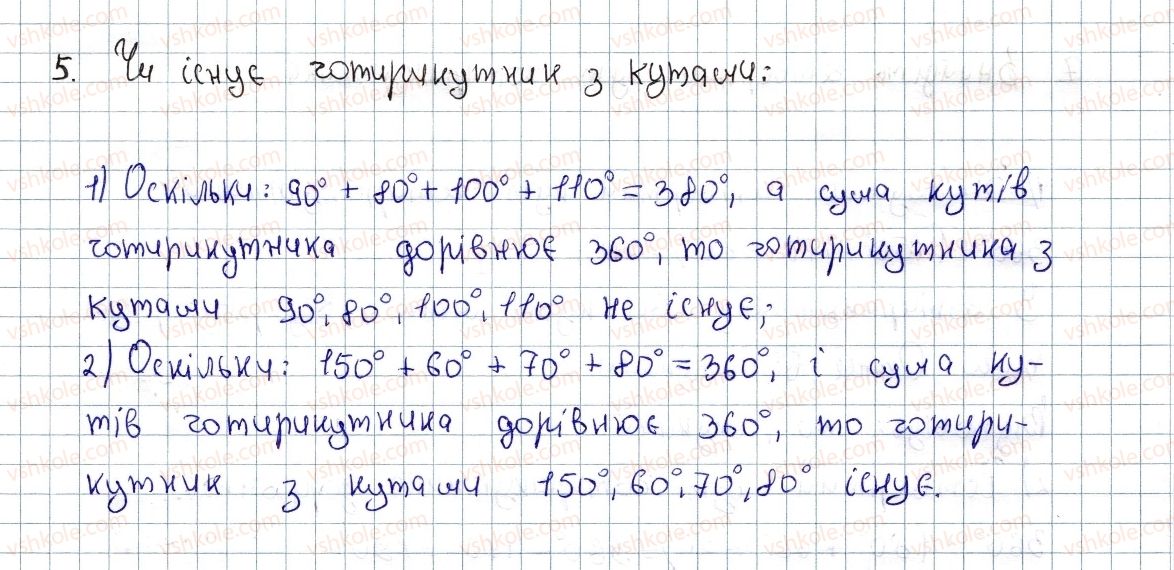 5. Чи існує чотирикутник з кутами:
1) Оскільки: 90° + 80° + 100° + 110° = 380°, а сума кутів
чотирикутника дорівнює 360°, то чотирикутника з
кутами 90°, 80°, 100°, 110° не існує;
2) Оскільки: 150° + 60° + 70° + 80° = 360°, і сума ку-
тів чотирикутника дорівнює 360°, то чотири-
кутник з кутами 150°, 60°, 70°, 80° існує.